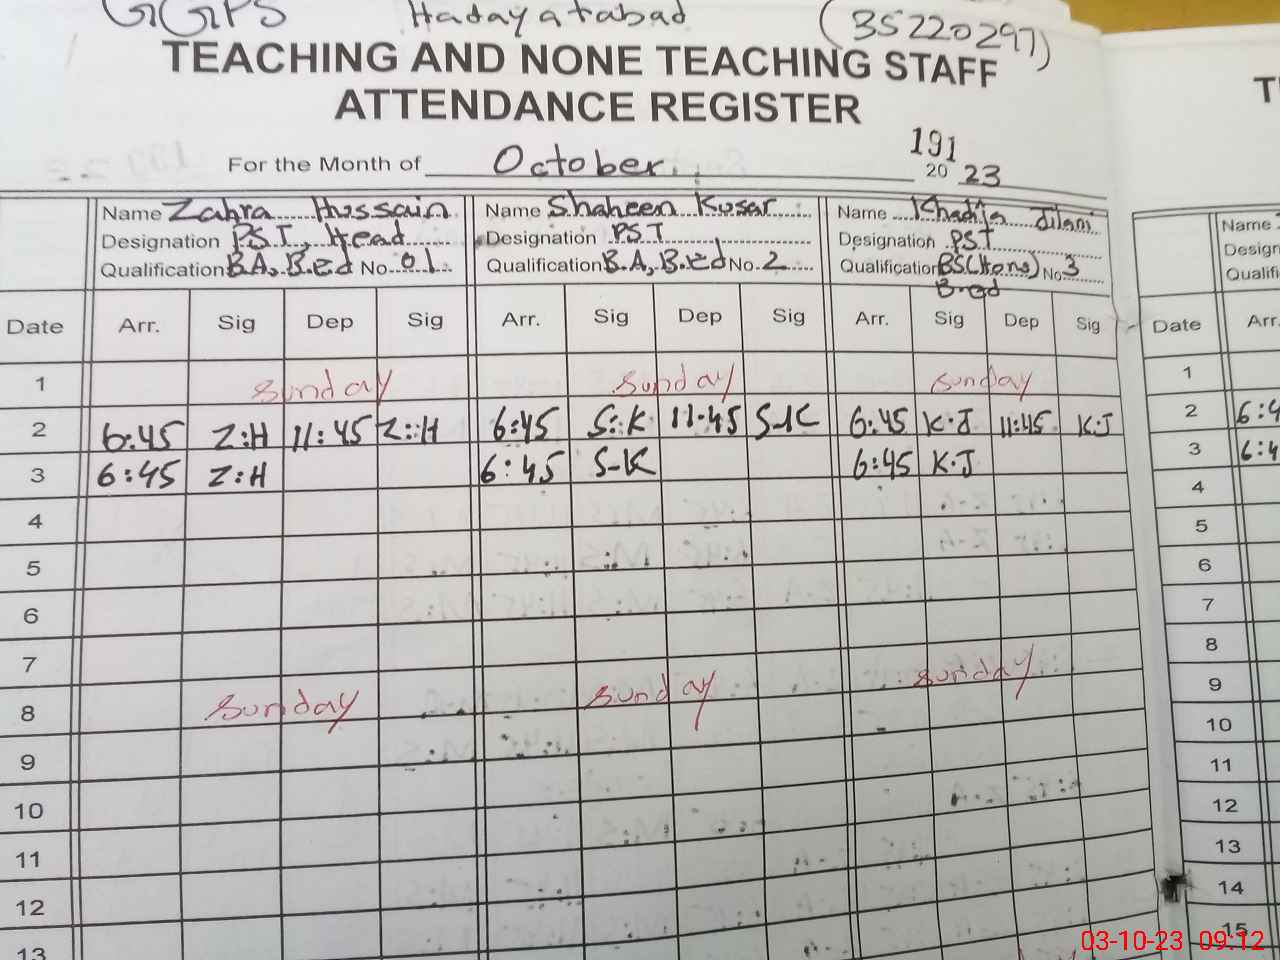 GGPS Hadayatabad (35220297)
TEACHING AND NONE TEACHING STAFF
ATTENDANCE REGISTER
191
For the Month of October 2023
Name Zahra Hussain Name Shaheen Kusar Name Khadija Jilani
Designation PST, Head Designation PST Designation PST
Qualification B.A, B.Ed No 01 Qualification B.A, B.Ed No. 2 Qualification BS(Hons) No 3
B.ed
Date Arr. Sig Dep Sig Arr. Sig Dep Sig Arr. Sig Dep Sig
1 Sunday Sunday Sunday
2 6:45 Z:H 11:45 Z:H 6:45 S:K 11:45 S-K 6:45 K.J 11:45 K.J
3 6:45 Z:H 6:45 S-K 6:45 K.J
4
5
6
7
8 Sunday Sunday Sunday
9
10
11
12
13
Name
Date Arr.
1
2
3
4
5
6
7
8
9
10
11
12
13
14
15
03-10-23 09:12